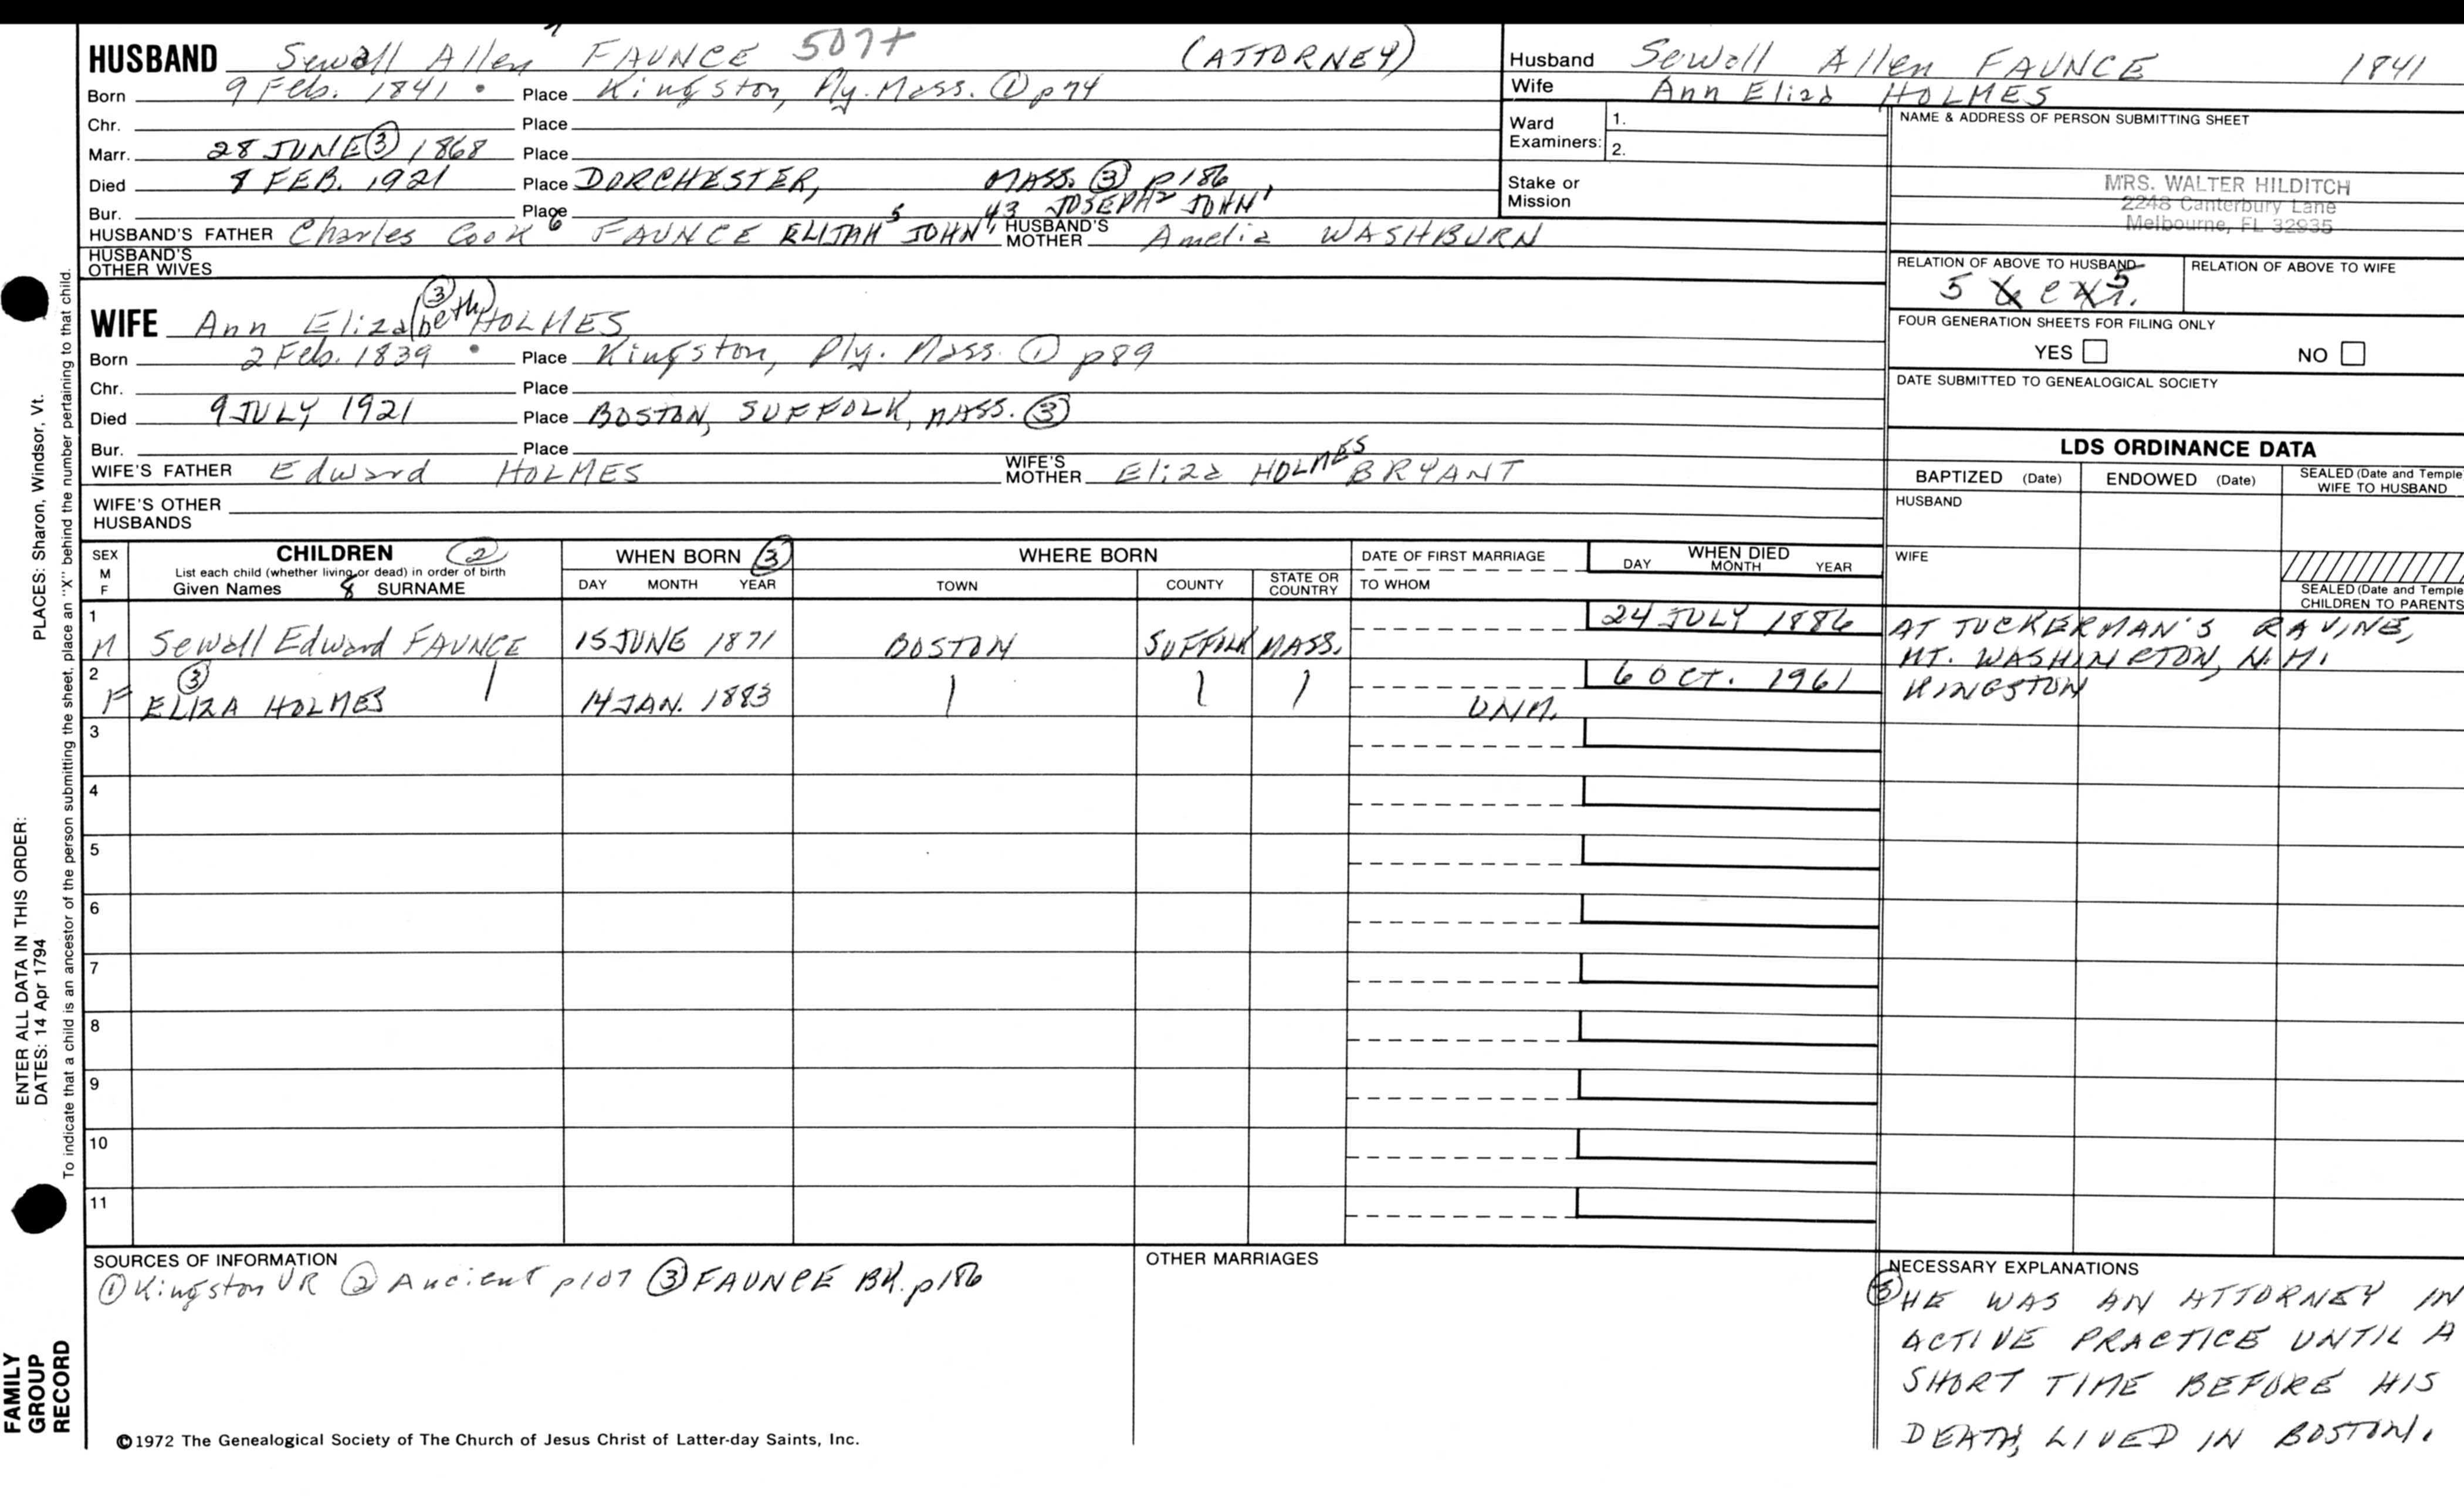 HUSBAND Sewall Allen 7 FAUNCE 507+ (ATTORNEY)
Born 9 Feb. 1841 Place Kingston, Ply. Mass. ① p74
Chr. Place
Marr. 28 JUNE ③ 1868 Place
Died 8 FEB. 1921 Place DORCHESTER, MASS. ③ p186
Bur. Place
HUSBAND'S FATHER Charles Cook 6 FAUNCE ELIJAH 5 JOHN 4, 3 JOSEPH 2 JOHN 1 HUSBAND'S MOTHER Amelia WASHBURN
HUSBAND'S OTHER WIVES
WIFE Ann Eliza(beth) ③ HOLMES
Born 2 Feb. 1839 Place Kingston, Ply. Mass. ① p89
Chr. Place
Died 9 JULY 1921 Place BOSTON, SUFFOLK, MASS. ③
Bur. Place
WIFE'S FATHER Edward HOLMES WIFE'S MOTHER Eliza HOLMES BRYANT
WIFE'S OTHER HUSBANDS
Husband Sewall Allen FAUNCE 1841
Wife Ann Eliza HOLMES
Ward Examiners: 1.
2.
Stake or Mission
NAME & ADDRESS OF PERSON SUBMITTING SHEET
MRS. WALTER HILDITCH
2248 Canterbury Lane
Melbourne, FL 32935
RELATION OF ABOVE TO HUSBAND RELATION OF ABOVE TO WIFE
FOUR GENERATION SHEETS FOR FILING ONLY
YES NO
DATE SUBMITTED TO GENEALOGICAL SOCIETY
LDS ORDINANCE DATA
BAPTIZED (Date) ENDOWED (Date) SEALED (Date and Temple) WIFE TO HUSBAND
HUSBAND
WIFE
SEALED (Date and Temple) CHILDREN TO PARENTS
SEX M F CHILDREN ② WHEN BORN ③ WHERE BORN DATE OF FIRST MARRIAGE WHEN DIED
List each child (whether living or dead) in order of birth
Given Names 8 SURNAME DAY MONTH YEAR TOWN COUNTY STATE OR COUNTRY TO WHOM DAY MONTH YEAR
1 M Sewall Edward FAUNCE 15 JUNE 1871 BOSTON SUFFOLK MASS. 24 JULY 1886 AT TUCKERMAN'S RAVINE, MT. WASHINGTON, N.H.
2 F ③ ELIZA HOLMES 14 JAN. 1883 UNM. 6 OCT. 1961 KINGSTON
3
4
5
6
7
8
9
10
11
SOURCES OF INFORMATION
① Kingston VR ② Ancient p107 ③ FAUNCE BK. p186
OTHER MARRIAGES
NECESSARY EXPLANATIONS
③ HE WAS AN ATTORNEY IN
ACTIVE PRACTICE UNTIL A
SHORT TIME BEFORE HIS
DEATH, LIVED IN BOSTON.
©1972 The Genealogical Society of The Church of Jesus Christ of Latter-day Saints, Inc.
ENTER ALL DATA IN THIS ORDER:
DATES: 14 Apr 1794 PLACES: Sharon, Windsor, Vt.
To indicate that a child is an ancestor of the person submitting the sheet, place an "X" behind the number pertaining to that child.
FAMILY
GROUP
RECORD